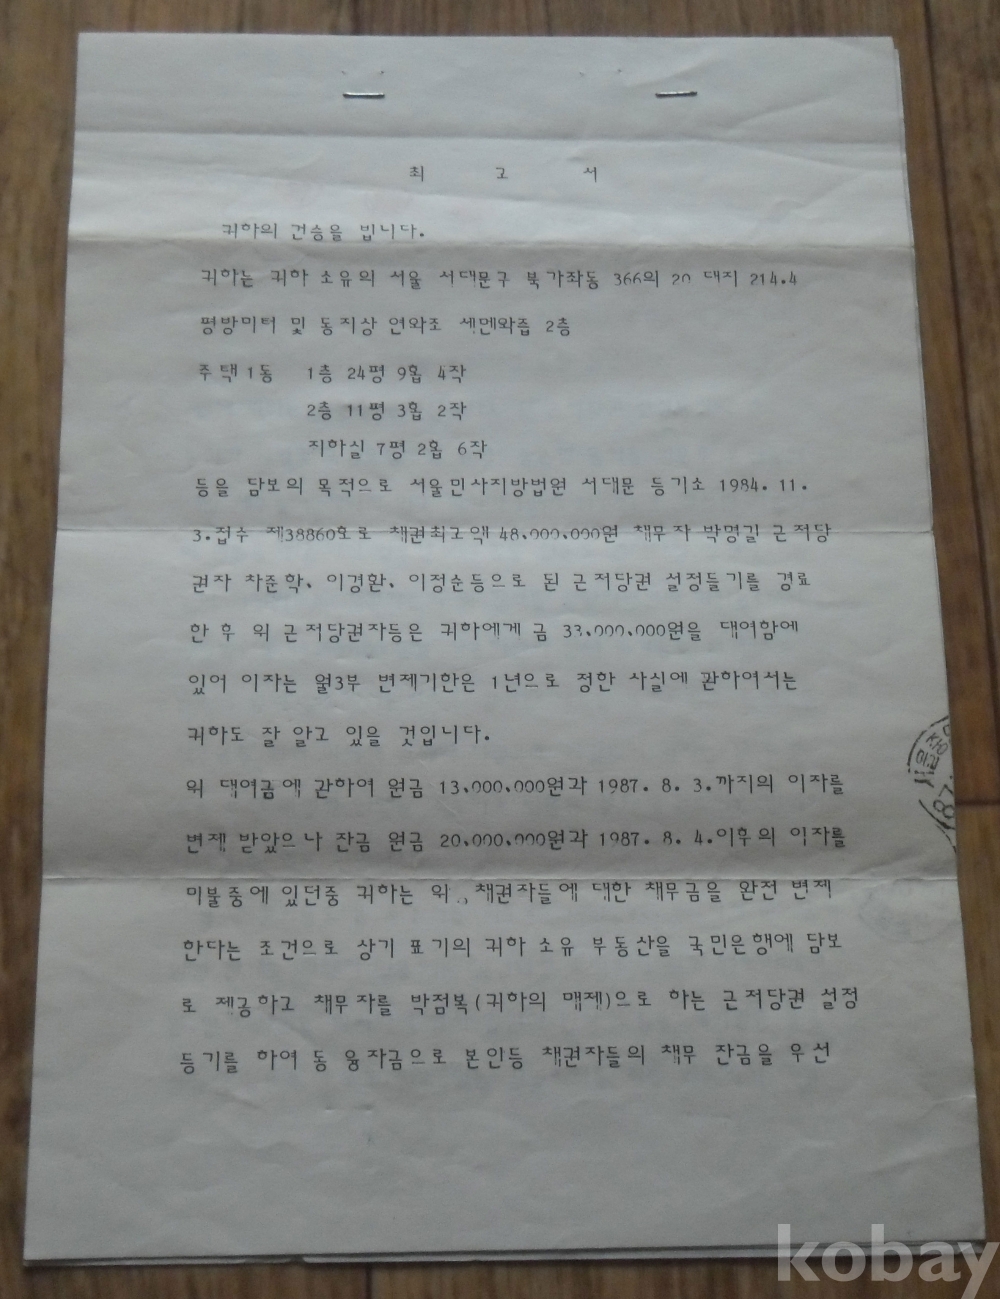 최 고 서
귀하의 건승을 빕니다.
귀하는 귀하 소유의 서울 서대문구 북가좌동 366의 20 대지 214.4
평방미터 및 동지상 연와조 세멘와즙 2층
주택1동 1층 24평 9홉 4작
2층 11평 3홉 2작
지하실 7평 2홉 6작
등을 담보의 목적으로 서울민사지방법원 서대문 등기소 1984. 11.
3.접수 제38860호로 채권최고액 48.000.000원 채무자 박명길 근저당
권자 차준학、이경환、이정순등으로 된 근저당권 설정들기를 경료
한 후 위 근저당권자등은 귀하에게 금 33.000.000원을 대여함에
있어 이자는 월3부 변제기한은 1년으로 정한 사실에 관하여서는
귀하도 잘 알고 있을 것입니다.
위 대여금에 관하여 원금 13.000.000원과 1987. 8. 3.까지의 이자를
변제 받았으나 잔금 원금 20.000.000원과 1987. 8. 4.이후의 이자를
미불중에 있던중 귀하는 위 채권자들에 대한 채무금을 완전 변제
한다는 조건으로 상기 표기의 귀하 소유 부동산을 국민은행에 담보
로 제공하고 채무자를 박점복(귀하의 매제)으로 하는 근저당권 설정
등기를 하여 동 융자금으로 본인등 채권자들의 채무 잔금을 우선
kobay